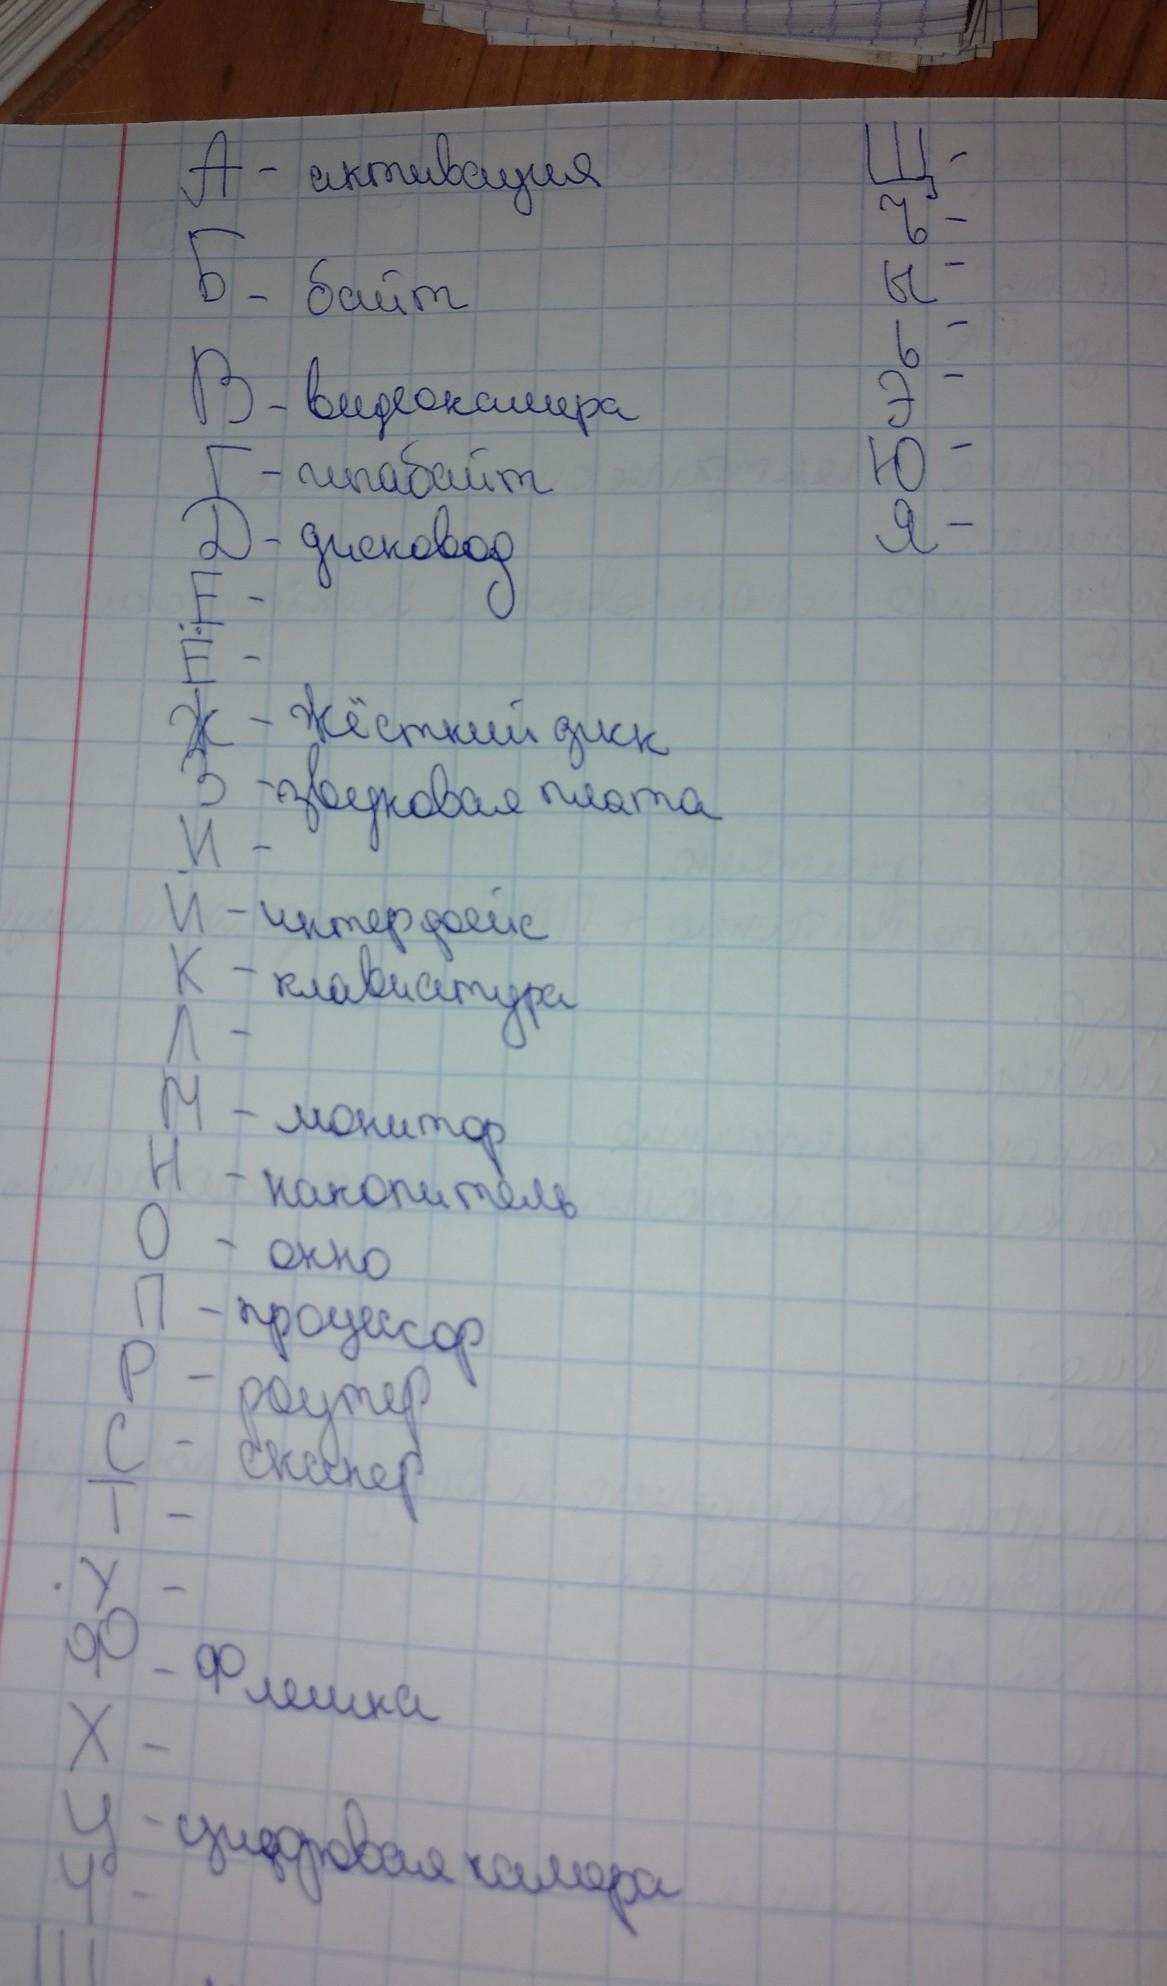 А - активация
Б - байт
В - видеокамера
Г - гигабайт
Д - дисковод
Е -
Ё -
Ж - жёсткий диск
З - звуковая плата
И -
Й - интерфейс
К - клавиатура
Л -
М - монитор
Н - накопитель
О - окно
П - процессор
Р - роутер
С - сканер
Т -
У -
Ф - Флешка
Х -
Ц - цифровая камера
Ч -
Ш
Щ -
Ъ -
Ы -
Ь -
Э -
Ю -
Я -